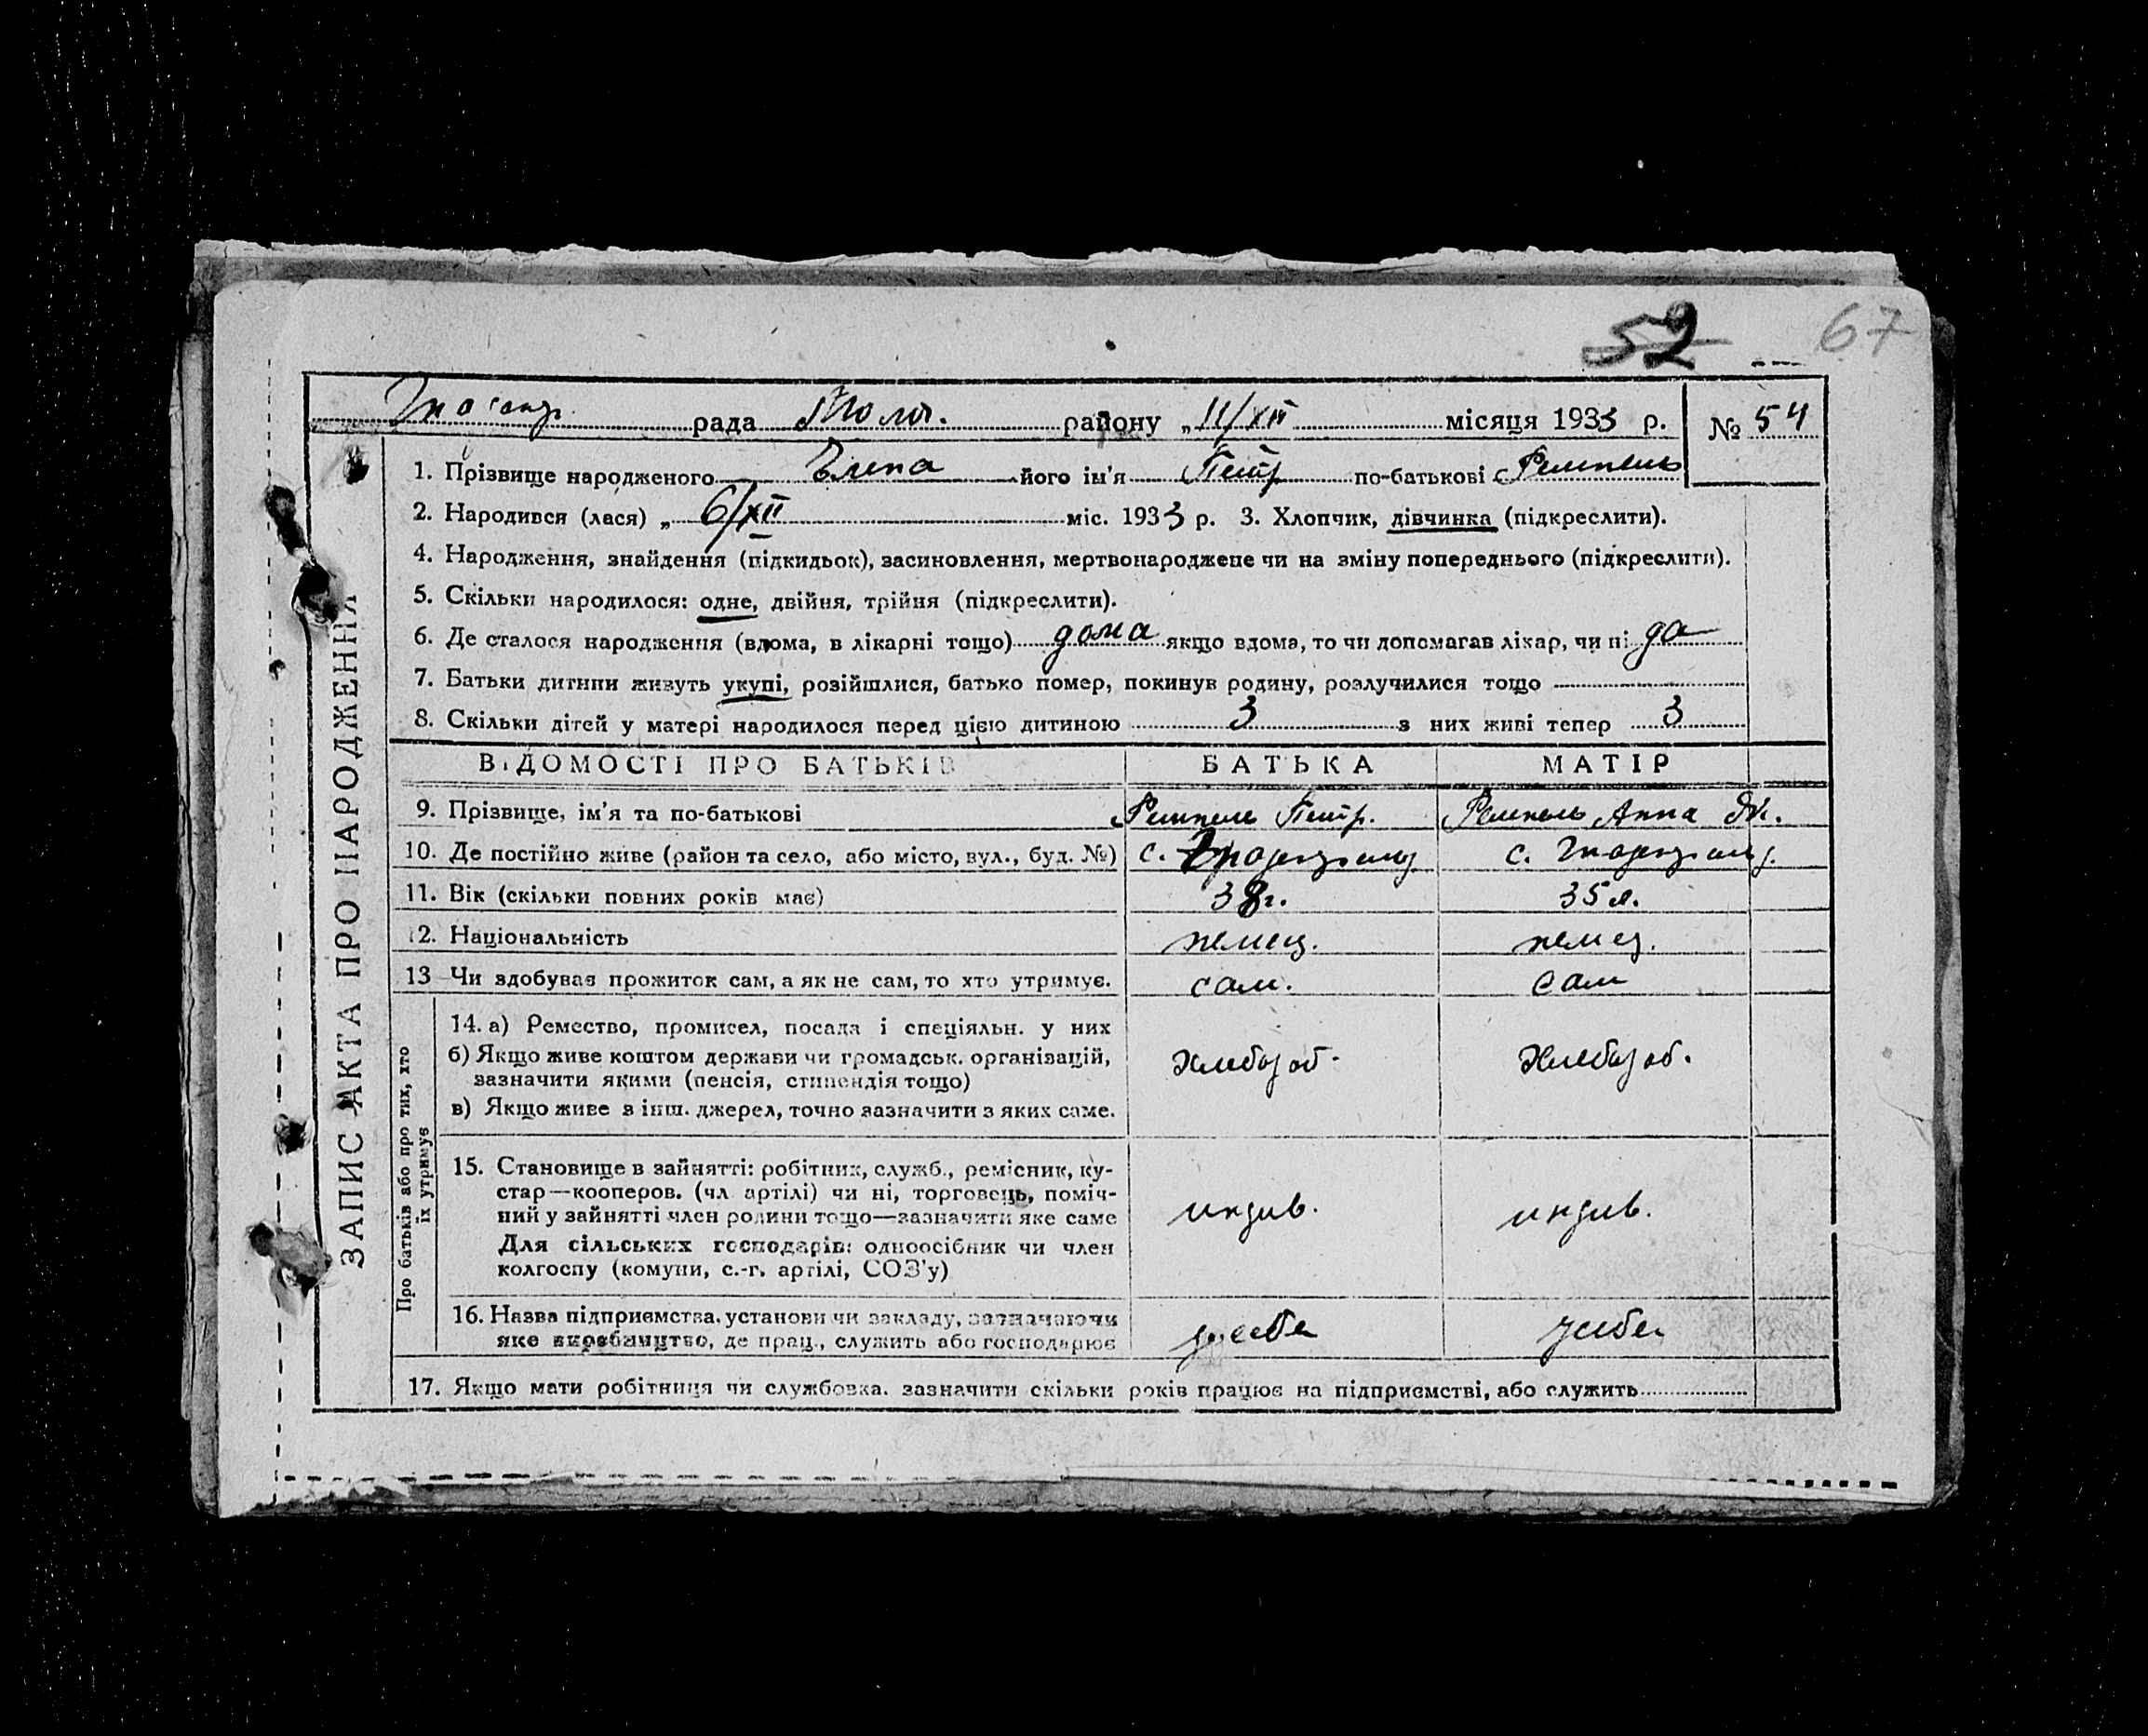 52 67
рада Моло. району „11/XII місяця 1933 р. № 54
1. Прізвище народженого Елена його ім'я Петр по-батькові Ремпель
2. Народився (лася) „ 6/XII міс. 1933 р. 3. Хлопчик, дівчинка (підкреслити).
4. Народження, знайдення (підкидьок), засиновлення, мертвонароджене чи на зміну попереднього (підкреслити).
5. Скільки народилося: одне, двійня, трійня (підкреслити).
6. Де сталося народження (вдома, в лікарні тощо) дома якщо вдома, то чи допомагав лікар, чи ні да
7. Батьки дитини живуть укупі, розійшлися, батько помер, покинув родину, розлучилися тощо
8. Скільки дітей у матері народилося перед цією дитиною 3 з них живі тепер 3
ЗАПИС АКТА ПРО НАРОДЖЕННЯ
ВІДОМОСТІ ПРО БАТЬКІВ БАТЬКА МАТІР
9. Прізвище, ім'я та по-батькові Ремпель Петр. Ремпель Анна Як.
10. Де постійно живе (район та село, або місто, вул., буд. №) с. с.
11. Вік (скільки повних років має) 38г. 35 л.
12. Національність немец. немец.
13 Чи здобуває прожиток сам, а як не сам, то хто утримує. сам. сам
Про батьків або про тих, хто їх утримує
14. а) Ремество, промисел, посада і спеціяльн. у них
б) Якщо живе коштом держави чи громадськ. організацій, Хлебороб. Хлебороб.
зазначити якими (пенсія, стипендія тощо)
в) Якщо живе з інш. джерел, точно зазначити з яких саме.
15. Становище в зайнятті: робітник, служб., ремісник, ку-
стар—кооперов. (чл артілі) чи ні, торговець, поміч-
ний у зайнятті член родини тощо—зазначити яке саме индив. индив.
Для сільських господарів: одноосібник чи член
колгоспу (комуни, с.-г. артілі, СОЗ'у)
16. Назва підприємства, установи чи закладу, зазначаючи
яке виробництво, де прац., служить або господарює у себе у себе
17. Якщо мати робітниця чи службовка. зазначити скільки років працює на підприємстві, або служить